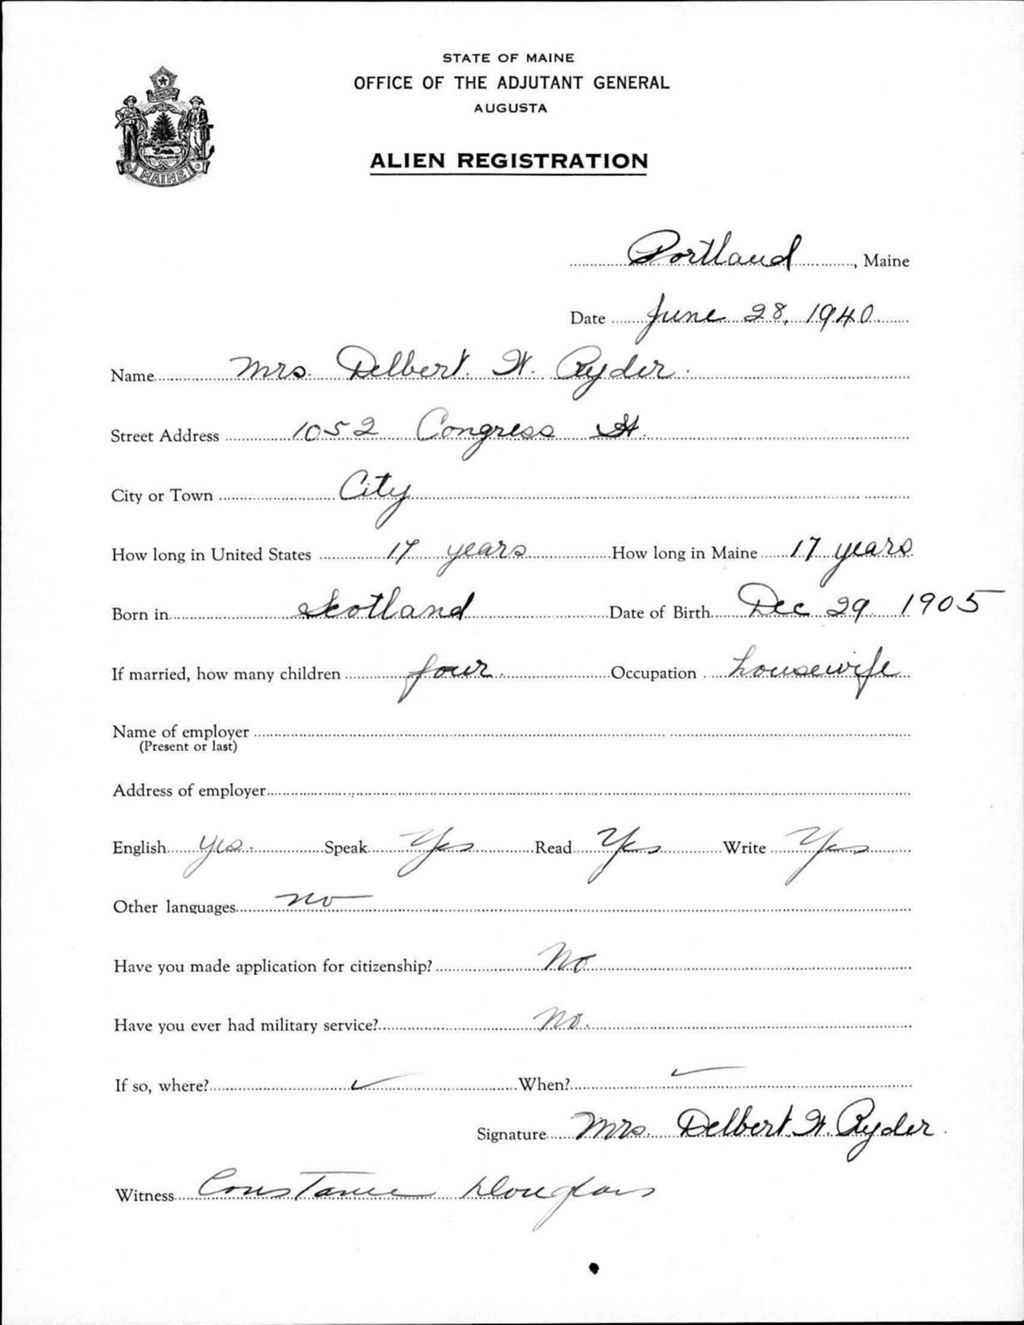 STATE OF MAINE
OFFICE OF THE ADJUTANT GENERAL
AUGUSTA
ALIEN REGISTRATION
MAINE
Portland, Maine
Date June 28, 1940
Name Mrs. Delbert. W. Ryder.
Street Address 1052 Congress St.
City or Town City
How long in United States 17 years How long in Maine 17 years
Born in Scotland Date of Birth Dec 29 1905
If married, how many children four. Occupation housewife
Name of employer
(Present or last)
Address of employer
English yes. Speak Yes Read Yes Write Yes
Other languages no
Have you made application for citizenship? No
Have you ever had military service? No.
If so, where? ✓ When? ✓
Signature Mrs Delbert. W. Ryder.
Witness Constance Douglass